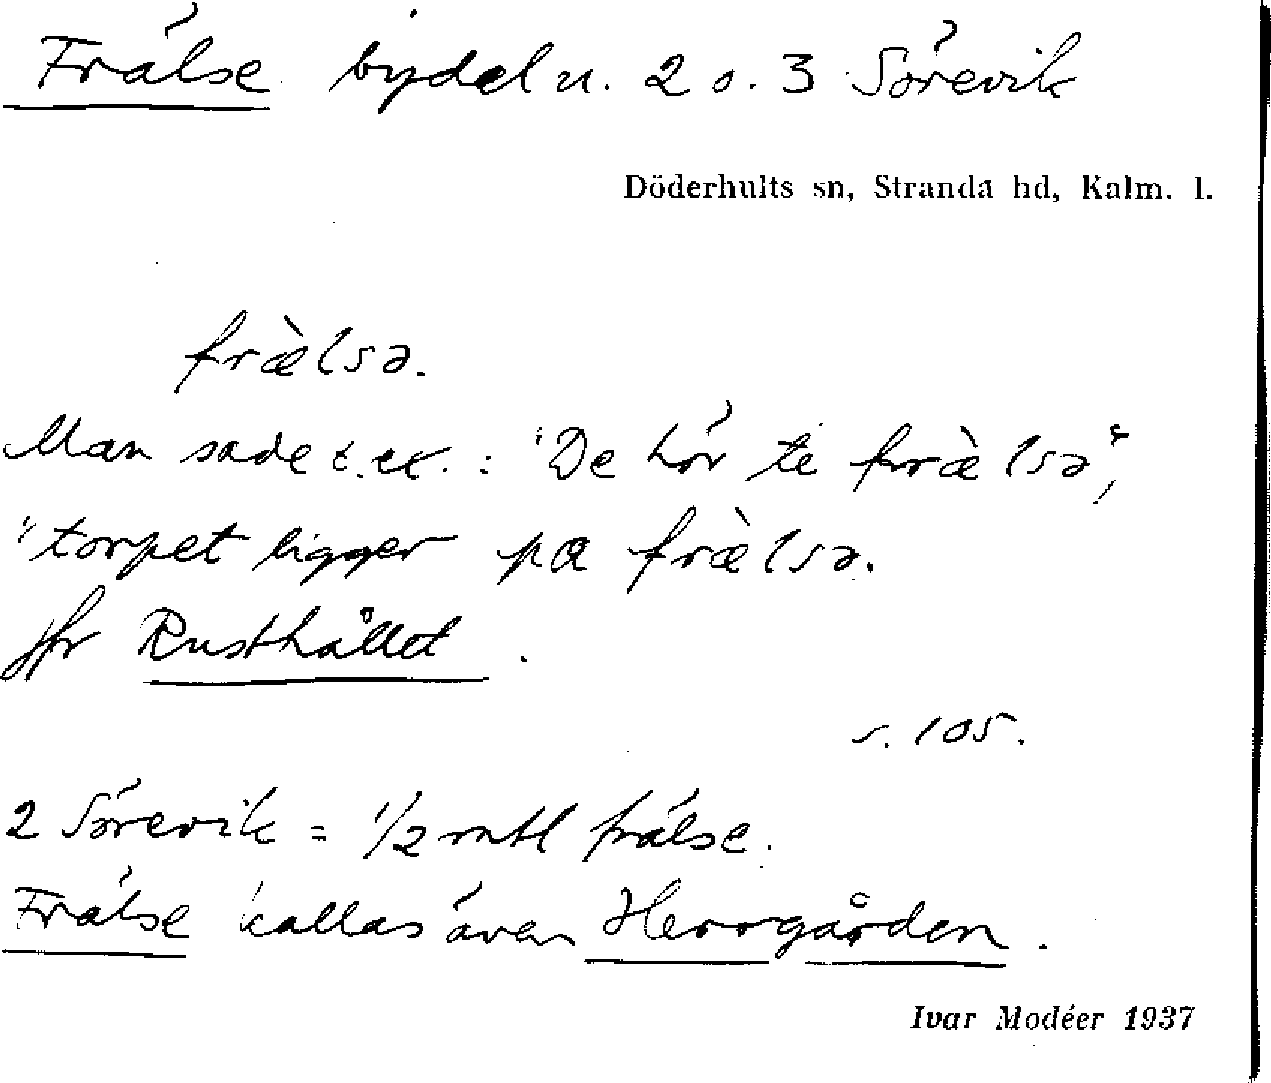 Frälse bydel n. 2 o. 3 Sörevik
Döderhults sn, Stranda hd, Kalm. l.
fræ̀lsə.
Man sade t.ex.: "De hör te fræ̀lsə",
"torpet ligger på fræ̀lsə.
Jfr Rusthållet.
s. 105.
2 Sörevik = 1/2 mtl frälse.
Frälse kallas även Herrgården.
Ivar Modéer 1937